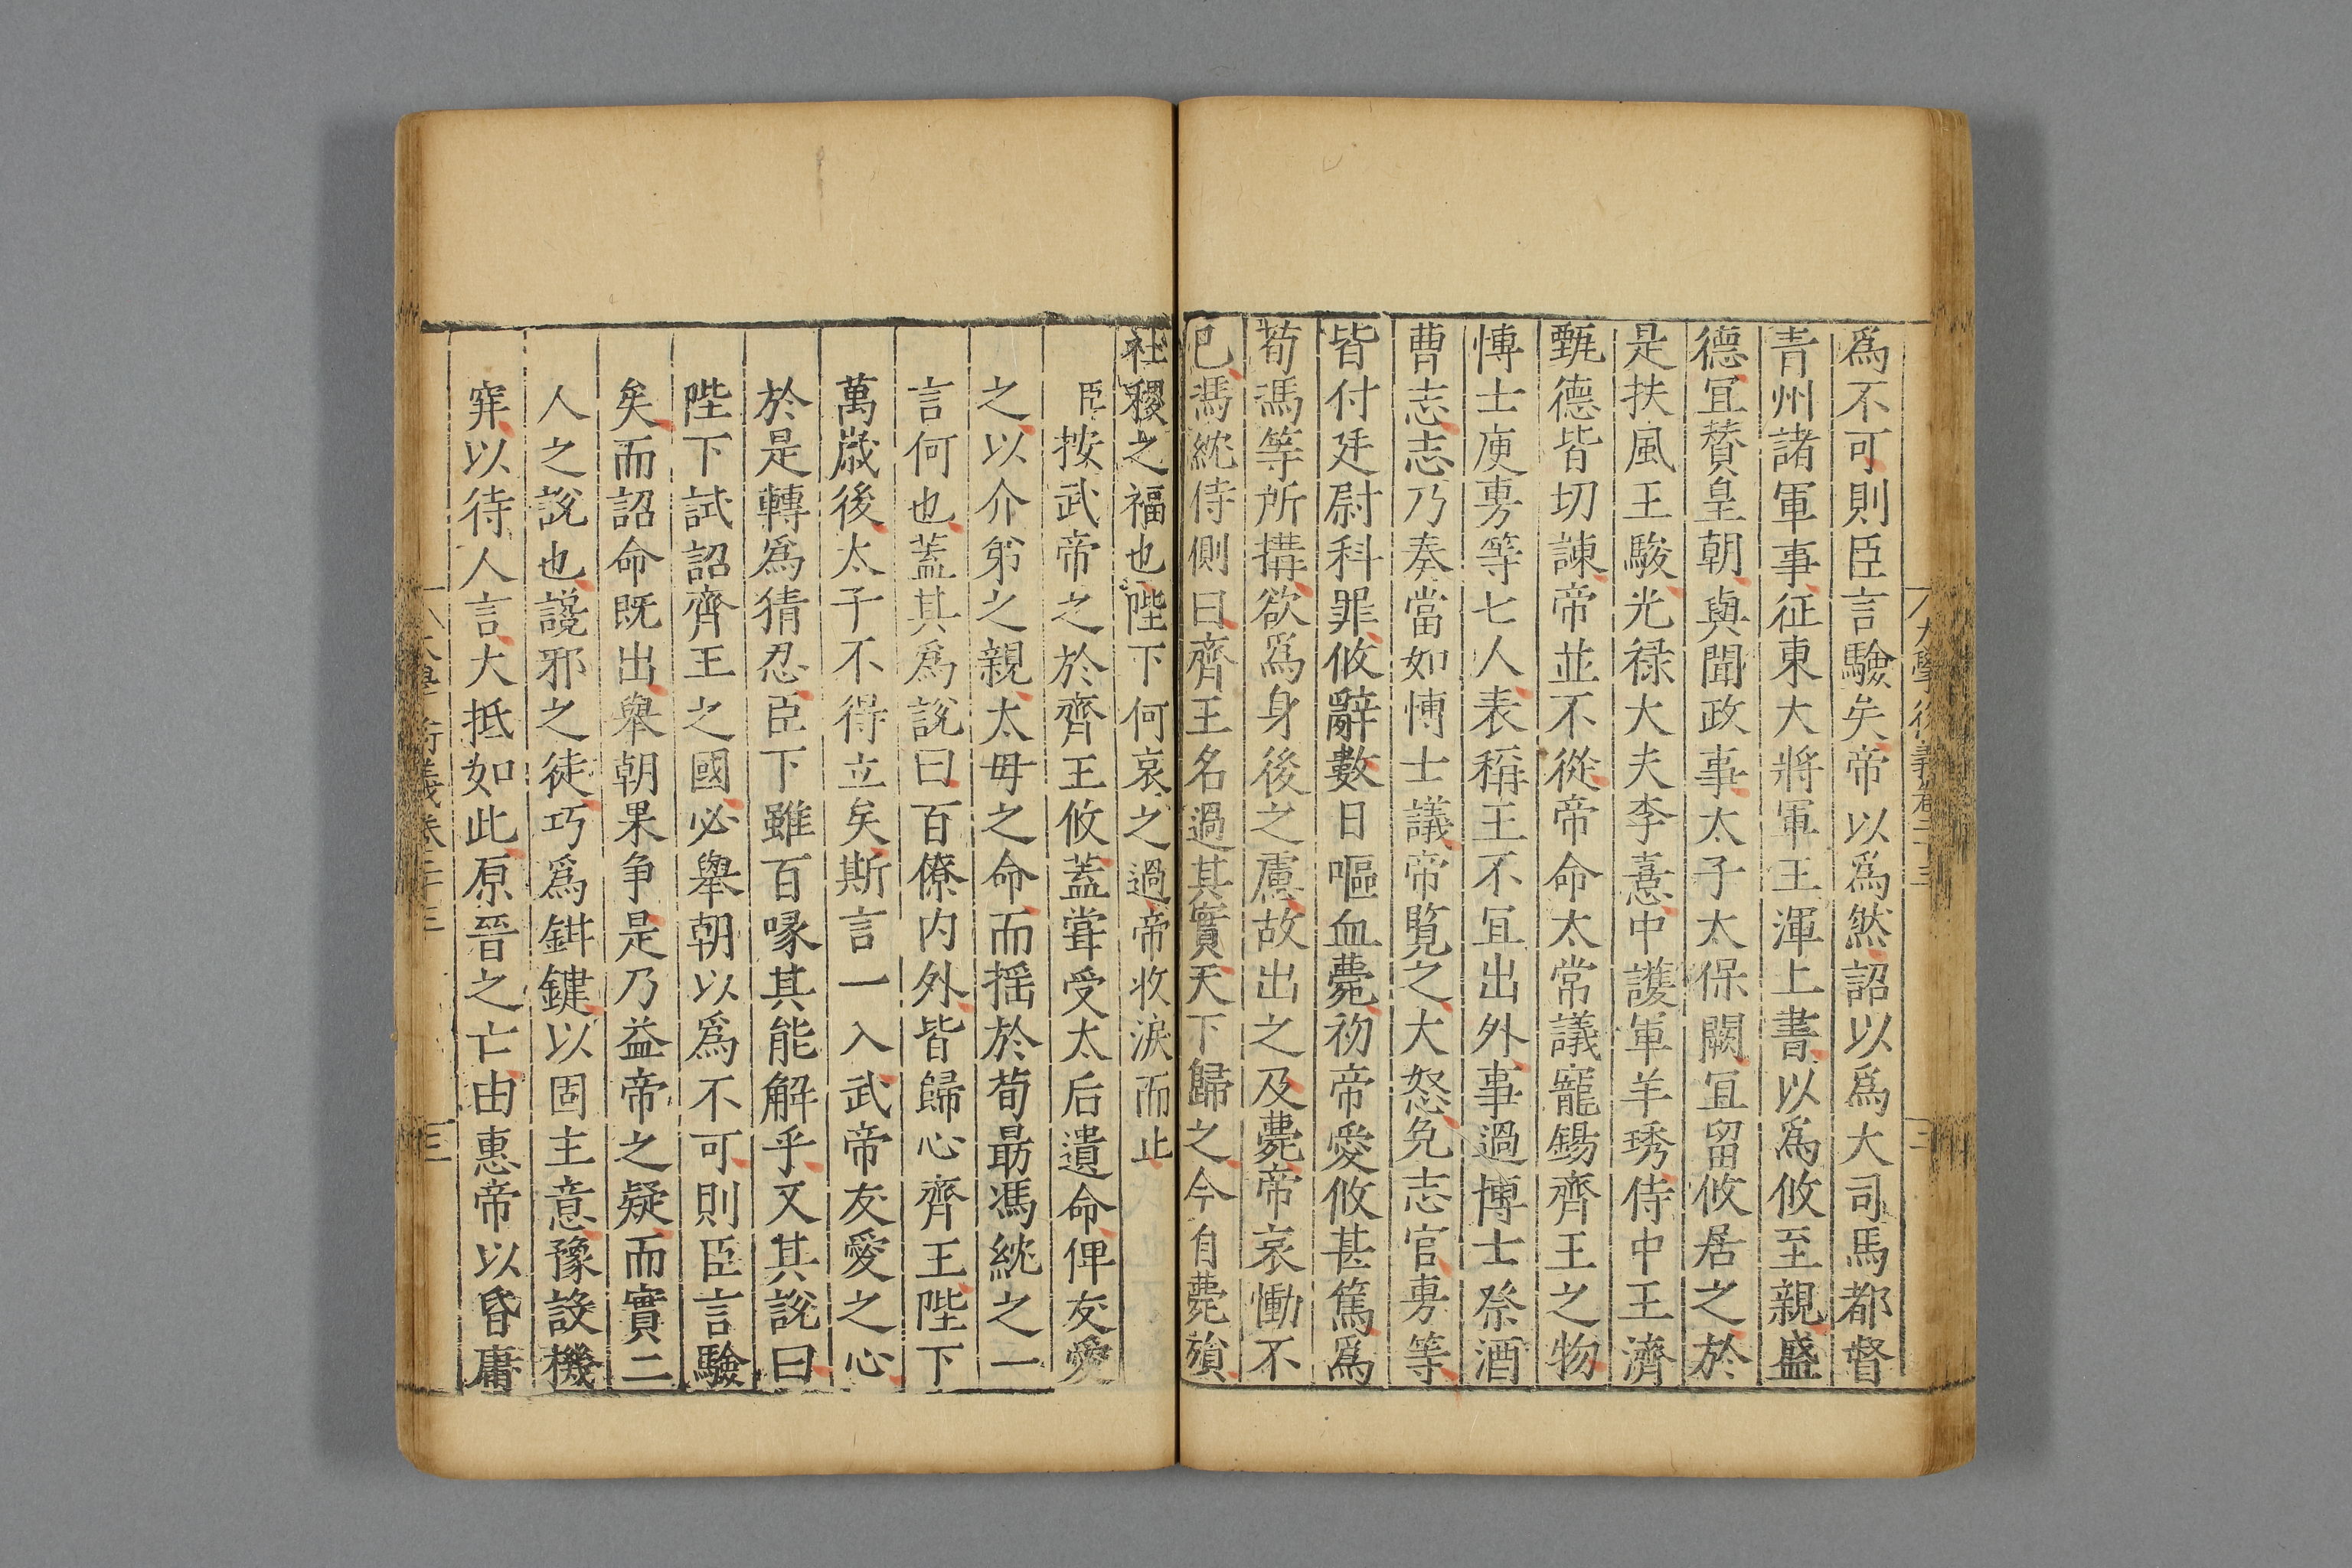 爲不可則臣言驗矣帝以爲然詔以爲大司馬都督
青州諸軍事征東大將軍王渾上書以爲攸至親盛
德宜賛皇朝與聞政事太子太保闕宜留攸居之於
是扶風王駿光禄大夫李憙中護軍羊琇侍中王濟
甄德皆切諫帝並不從帝命太常議寵錫齊王之物
博士庾旉等七人表稱王不宜出外事過博士祭酒
曹志志乃奏當如博士議帝覧之大怒免志官旉等
皆付廷尉科罪攸辭數日嘔血薨初帝愛攸甚篤爲
荀馮等所搆欲爲身後之慮故出之及薨帝哀慟不
已馮紞侍側曰齊王名過其實天下歸之今自薨殞
社稷之福也陛下何哀之過帝收淚而止
臣按武帝之於齊王攸蓋甞受太后遺命俾友愛
之以介弟之親太母之命而揺於荀朂馮紞之一
言何也蓋其爲說曰百僚内外皆歸心齊王陛下
萬歳後太子不得立矣斯言一入武帝友愛之心
於是轉爲猜忍臣下雖百喙其能解乎又其說曰
陛下試詔齊王之國必舉朝以爲不可則臣言驗
矣而詔命既出舉朝果争是乃益帝之疑而實二
人之說也讒邪之徒巧爲鉗鍵以固主意豫設機
穽以待人言大抵如此原晉之亡由惠帝以昏庸
三